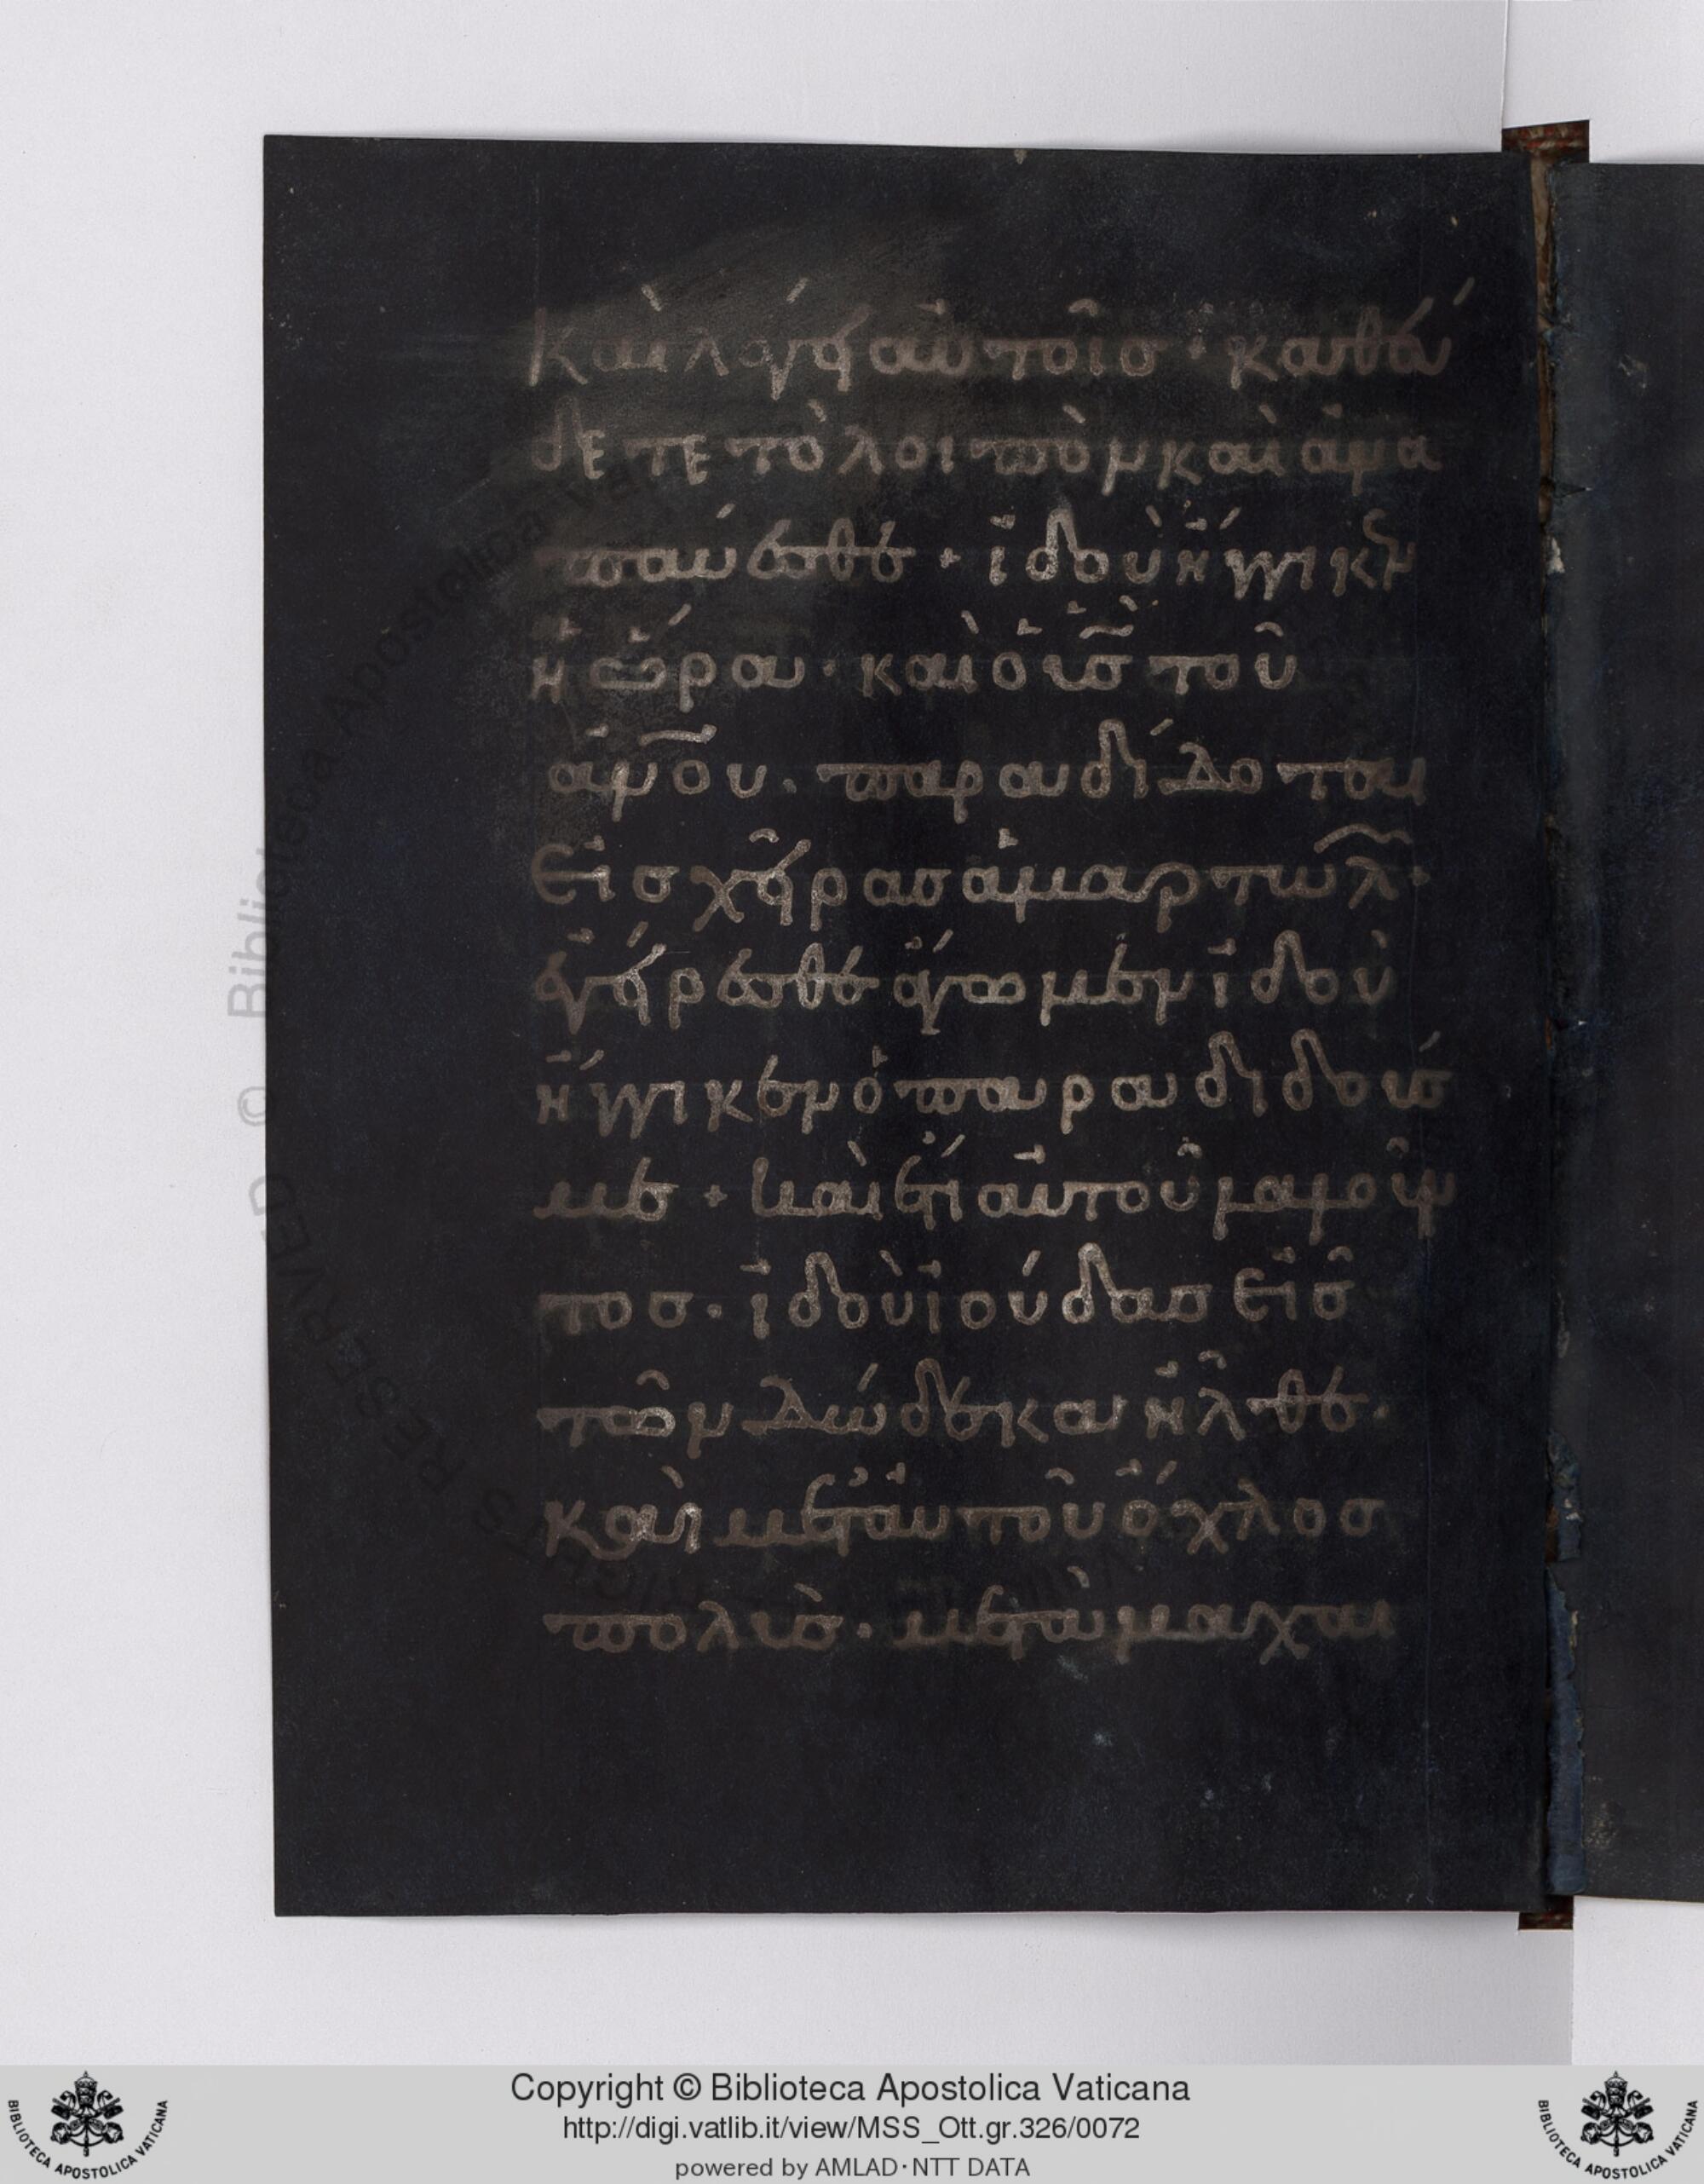 Καὶ λέγει αὐτοῖσ· καθεύ
δετε τὸ λοιπὸν καὶ ἀνα
παύεσθε + ἰδοὺ ἤγγικεν
ἡ ὥρα· καὶ ὁ υ̅σ̅ τοῦ
ἀ̅ν̅ο̅υ̅. παραδίδοται
εἰσ χεῖρασ ἁμαρτωλ̅·
ἐγείρεσθε ἄγωμεν ἰδοὺ
ἤγγικεν ὁ παραδιδούσ
με + καὶ ἔτι αὐτοῦ λαλοῦν
τοσ. ἰδοὺ ἰούδασ εἷσ
τῶν δώδεκα ἦλθε.
καὶ μετ' αὐτοῦ ὄχλοσ
πολὺσ. μετὰ μαχαι
© Biblioteca Apostolica Vaticana
RIGHTS RESERVED
Copyright © Biblioteca Apostolica Vaticana
http://digi.vatlib.it/view/MSS_Ott.gr.326/0072
powered by AMLAD·NTT DATA
BIBLIOTECA APOSTOLICA VATICANA
BIBLIOTECA APOSTOLICA VATICANA